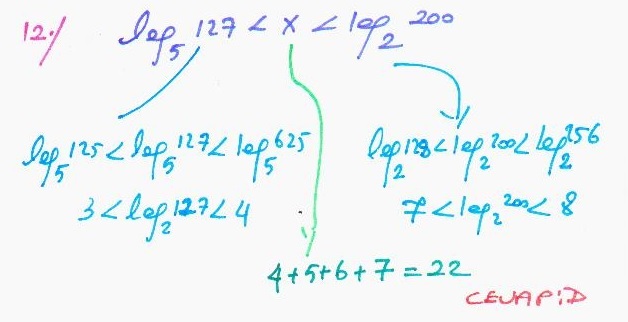 12./ log₅ 127 < x < log₂ 200
log₅ 125 < log₅ 127 < log₅ 625 log₂ 128 < log₂ 200 < log₂ 256
3 < log₂ 127 < 4 7 < log₂ 200 < 8
4+5+6+7 = 22
CEVAP:D